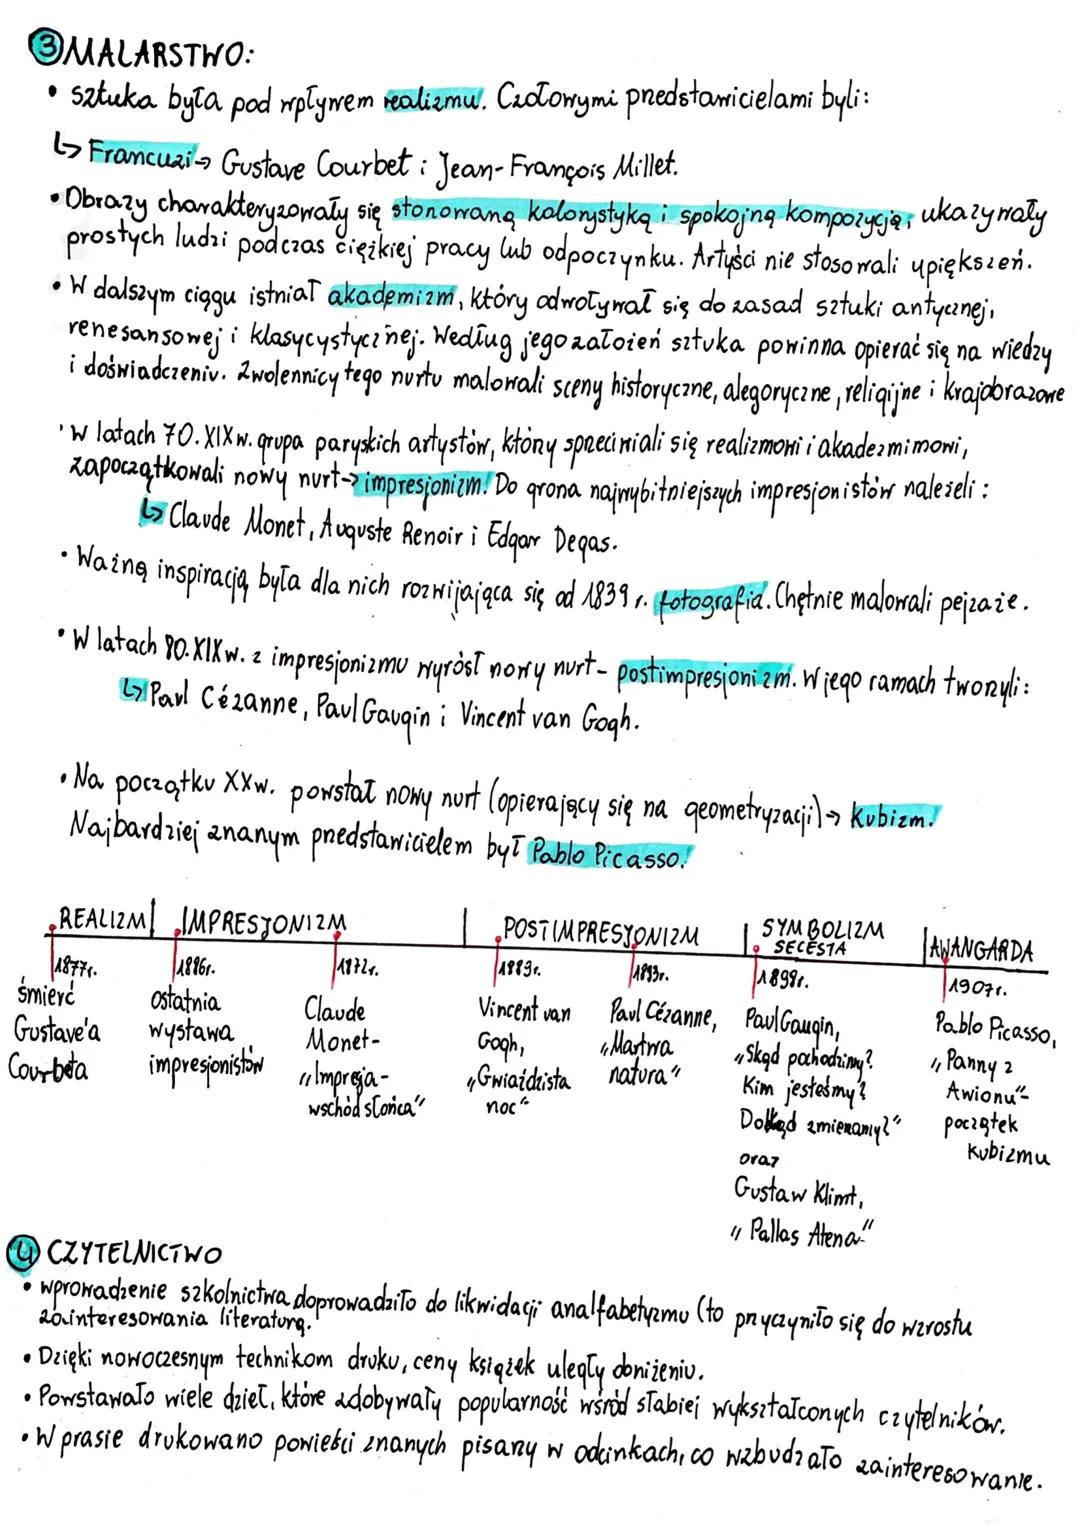 ③ MALARSTWO:
• sztuka była pod wpływem realizmu. Czołowymi przedstawicielami byli:
↳ Francuzi → Gustave Courbet i Jean-François Millet.
• Obrazy charakteryzowały się stonowaną kolorystyką i spokojną kompozycją, ukazywały
prostych ludzi podczas ciężkiej pracy lub odpoczynku. Artyści nie stosowali upiększeń.
• W dalszym ciągu istniał akademizm, który odwoływał się do zasad sztuki antycznej,
renesansowej i klasycystycznej. Według jego założeń sztuka powinna opierać się na wiedzy
i doświadczeniu. Zwolennicy tego nurtu malowali sceny historyczne, alegoryczne, religijne i krajobrazowe
• W latach 70. XIX w. grupa paryskich artystów, którzy sprzeciwiali się realizmowi i akademizmowi,
zapoczątkowali nowy nurt → impresjonizm! Do grona najwybitniejszych impresjonistów należeli:
↳ Claude Monet, Auguste Renoir i Edgar Degas.
• Ważną inspiracją była dla nich rozwijająca się od 1839 r. fotografia. Chętnie malowali pejzaże.
• W latach 80. XIX w. z impresjonizmu wyrósł nowy nurt - postimpresjonizm. W jego ramach tworzyli:
↳ Paul Cézanne, Paul Gaugin i Vincent van Gogh.
• Na początku XX w. powstał nowy nurt (opierający się na geometryzacji) → kubizm!
Najbardziej znanym przedstawicielem był Pablo Picasso!
REALIZM IMPRESJONIZM POSTIMPRESJONIZM SYMBOLIZM SECESJA AWANGARDA
1877r.
śmierć
Gustave'a
Courbeta
1886r.
ostatnia
wystawa
impresjonistów
1872r.
Claude
Monet-
„Impresja-
wschód słońca"
1889r.
Vincent van
Gogh,
„Gwiaździsta
noc"
1893r.
Paul Cézanne,
„Martwa
natura"
1898r.
Paul Gaugin,
„Skąd pochodzimy?
Kim jesteśmy?
Dokąd zmierzamy?"
oraz
Gustaw Klimt,
„Pallas Atena"
1907r.
Pablo Picasso,
„Panny z
Awionu"-
początek
kubizmu
④ CZYTELNICTWO
• wprowadzenie szkolnictwa doprowadziło do likwidacji analfabetyzmu (to przyczyniło się do wzrostu
zainteresowania literaturą.
• Dzięki nowoczesnym technikom druku, ceny książek uległy obniżeniu.
• Powstawało wiele dzieł, które zdobywały popularność wśród słabiej wykształconych czytelników.
• W prasie drukowano powieści znanych pisarzy w odcinkach, co wzbudzało zainteresowanie.